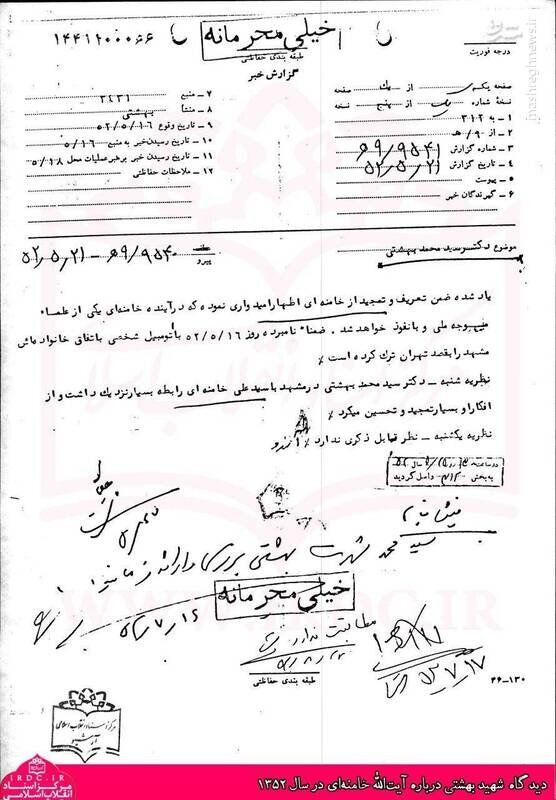 خیلی محرمانه
۱۴۴۱۲۰۰۰۶۶
طبقه بندی حفاظتی
درجه فوریت
گزارش خبر
صفحه یکصد از یک صفحه
نسخه شماره یک از پنج نسخه
۱ – به ۳۱۲
۲ – از ۹/هـ
۳ – شماره گزارش ۶۹/۹۵۴۱
۴ – تاریخ گزارش ۵۲/۵/۲۱
۵ – پیوست
۶ – گیرندگان خبر
۷ – منبع ۲۴۳۱
۸ – منشأ بهشتی
۹ – تاریخ وقوع ۵۲/۵/۱۶
۱۰ – تاریخ رسیدن خبر به منبع ۵/۱۶
۱۱ – تاریخ رسیدن خبر به رهبر عملیات محل ۵/۱۸
۱۲ – ملاحظات حفاظتی
موضوع دکتر سید محمد بهشتی
پیرو ۶۹/۹۵۴۰ – ۵۲/۵/۲۱
یاد شده ضمن تعریف و تمجید از خامنه ای اظهار امیدواری نموده که درآینده خامنه‌ای یکی از علماء
وجه ملی و بانفوذ خواهد شد . ضمناً نامبرده روز ۵۲/۵/۱۶ باتومبیل شخصی باتفاق خانواده‌اش
مشهد را بقصد تهران ترک کرده است٪
نظریه شنبه – دکتر سید محمد بهشتی درمشهد باسید علی خامنه ای رابطه بسیار نزدیک داشت و از
افکار او بسیار تمجید و تحسین میکرد٪
نظریه یکشنبه – نظر قابل ذکری ندارد٪
به بخش ۳۱۲ داخل گردید
سید محمد شهرت بهشتی بررسی و ارائه فرمائید
خیلی محرمانه
طبقه بندی حفاظتی
۴۶–۱۳۰
مرکز اسناد انقلاب اسلامی
آرشیو
IRDC.IR
مرکز اسناد
انقلاب اسلامی
دیدگاه شهید بهشتی درباره آیت‌الله خامنه‌ای در سال ۱۳۵۲
mashreghnews.ir